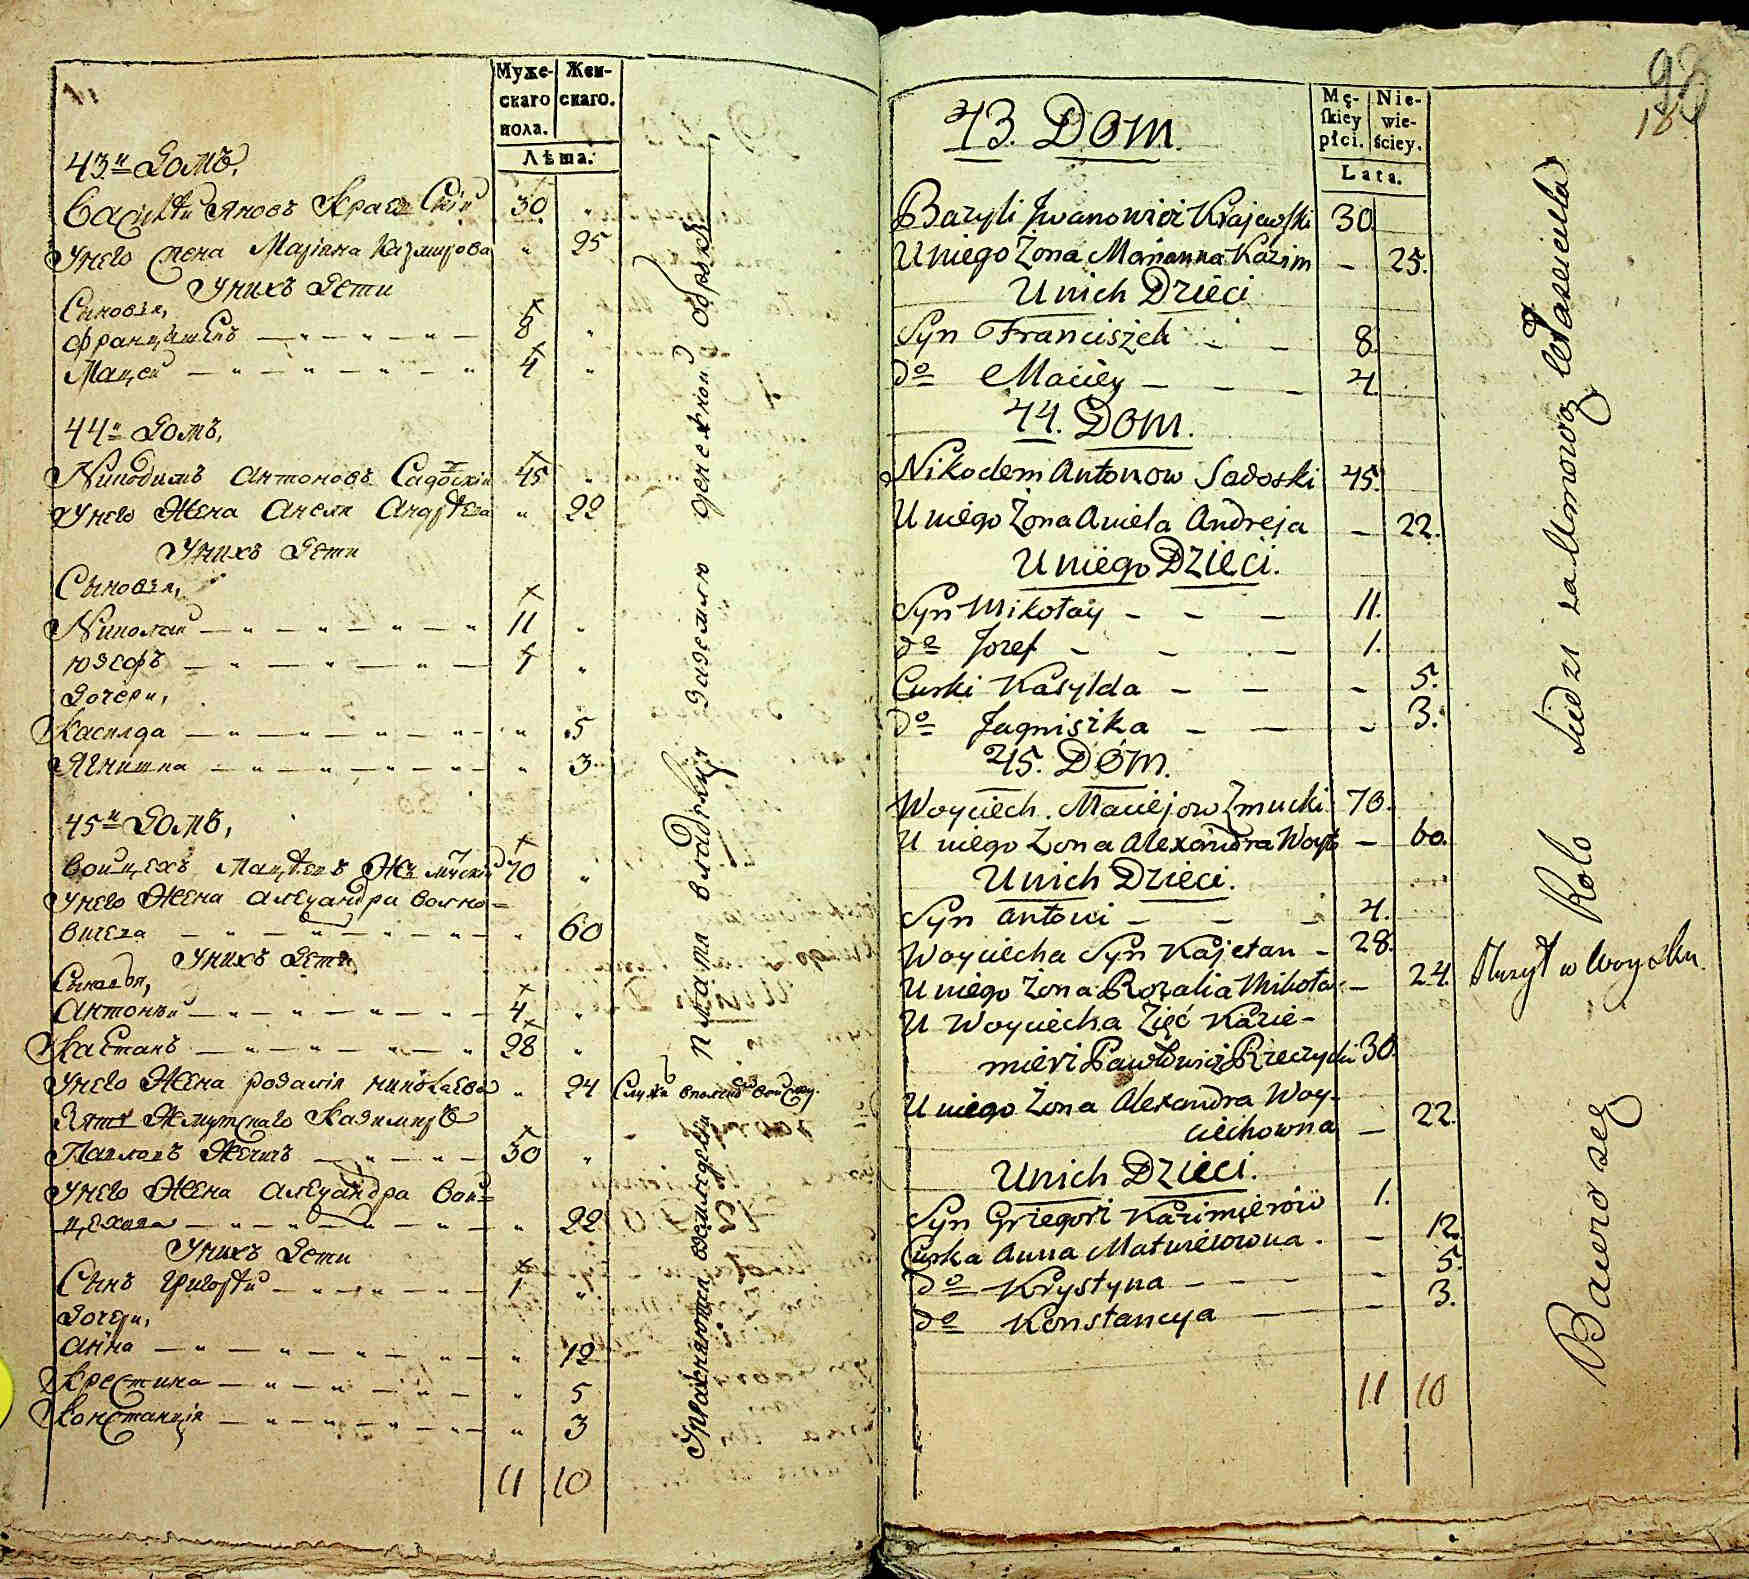 Муже- Жен-
скаго скаго.
пола.
Лѣта.
43й Домъ,
Василій Яновъ Краевскій 30 "
Унего жена Маріяна Казимирова " 25
Унихъ Дети
Сыновья,
Францишекъ 8 "
Мацей 4 "
44й Домъ,
Никодимъ Антоновъ Садовскій 45 "
Унего Жена Анеля Андрѣева " 22
Унихъ Дети
Сыновья,
Николай 11 "
Юзефъ 1 "
Дочери,
Касилда " 5
Ягнишка " 3
45й Домъ,
Войцехъ Мацѣевъ Жмуцкій 70 "
Унего Жена Александра
" 60
Унихъ Дети
Сыновья,
Антоній 4 "
Каетанъ 28 "
Унего Жена Розалія Николаева " 24
Зять Жмутскаго Казимиръ
Павловъ 30 "
Унего Жена Александра Вой-
цехова " 22
Унихъ Дети
Сынъ Григорій 1 "
Дочери,
Анна " 12
Крестина " 5
Констанція " 3
11 10
Упражняются земледелiем плата владельцу за землю денежной оброк
98
18
Mę- Nie-
skiey wie-
płci. ściey.
Lata.
43. Dom.
Bazyli Jwanowicz Krajewski 30.
U niego Żona Marianna Kazim – 25.
U nich Dzieci
Syn Franciszek – – 8.
do Maciey – – – 4.
44. Dom.
Nikodem Antonow Sadoski 45.
U niego Żona Aniela Andreja – 22.
U niego Dzieci.
Syn Mikołay – – – 11.
do Jozef – – – 1.
Curki Kasylda – – – 5.
do Jagniszka – – – 3.
45. Dom.
Woyciech Maciejow Zmucki 70.
U niego Zona Alexandra Woyt – 60.
U nich Dzieci.
Syn Antoni – – – 4.
Woyciecha Syn Kajetan – 28.
U niego Żona Rozalia Mikoła – 24. Służył w Woysku.
U Woyciecha Zięć Kazie-
mierz Pawłowicz Rzeczycki 30.
U niego Żona Alexandra Woy-
ciechowna – 22.
U nich Dzieci.
Syn Grzegorz Kazimierow 1.
Curka Anna Matwieiowna. – 12.
do Krystyna – – – – 5.
do Konstancya – – 3.
11 10
Bawio się Rolo ludzi za Umową